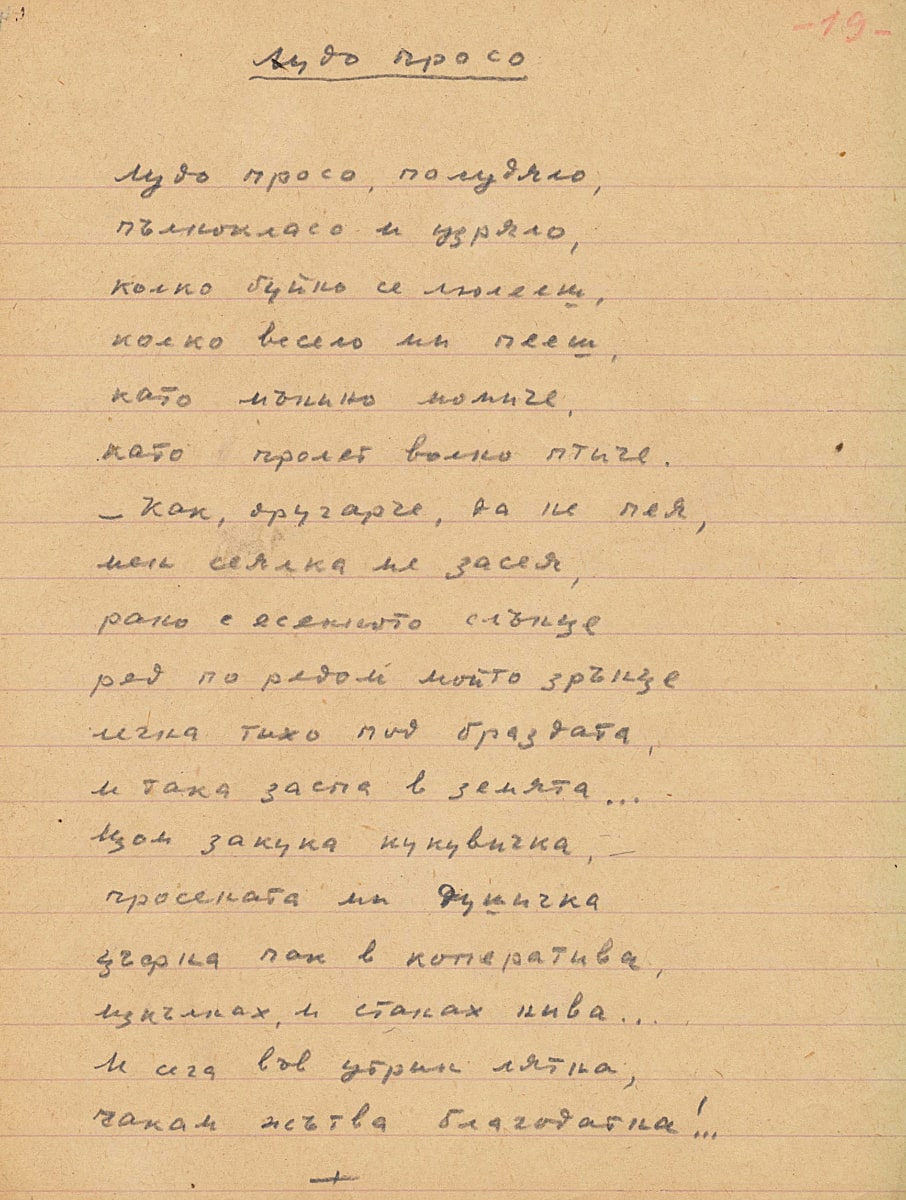 -19-
Лудо просо
Лудо просо, полудяло,
пълнокласо и узряло,
колко буйно се люлееш,
колко весело ми пееш,
като мъничко момиче,
като пролет волно птиче.
– Как, другарче, да не пея,
мен сеялка ме засея,
рано с есенното слънце
ред по редом мойто зрънце
легна тихо под браздата,
и така заспа в земята...
Щом закука кукувичка, –
просената ми душичка
цъфна пак в коператива,
изкълнах, и станах нива...
И сега във утрин лятна,
чакам жътва благодатна!...